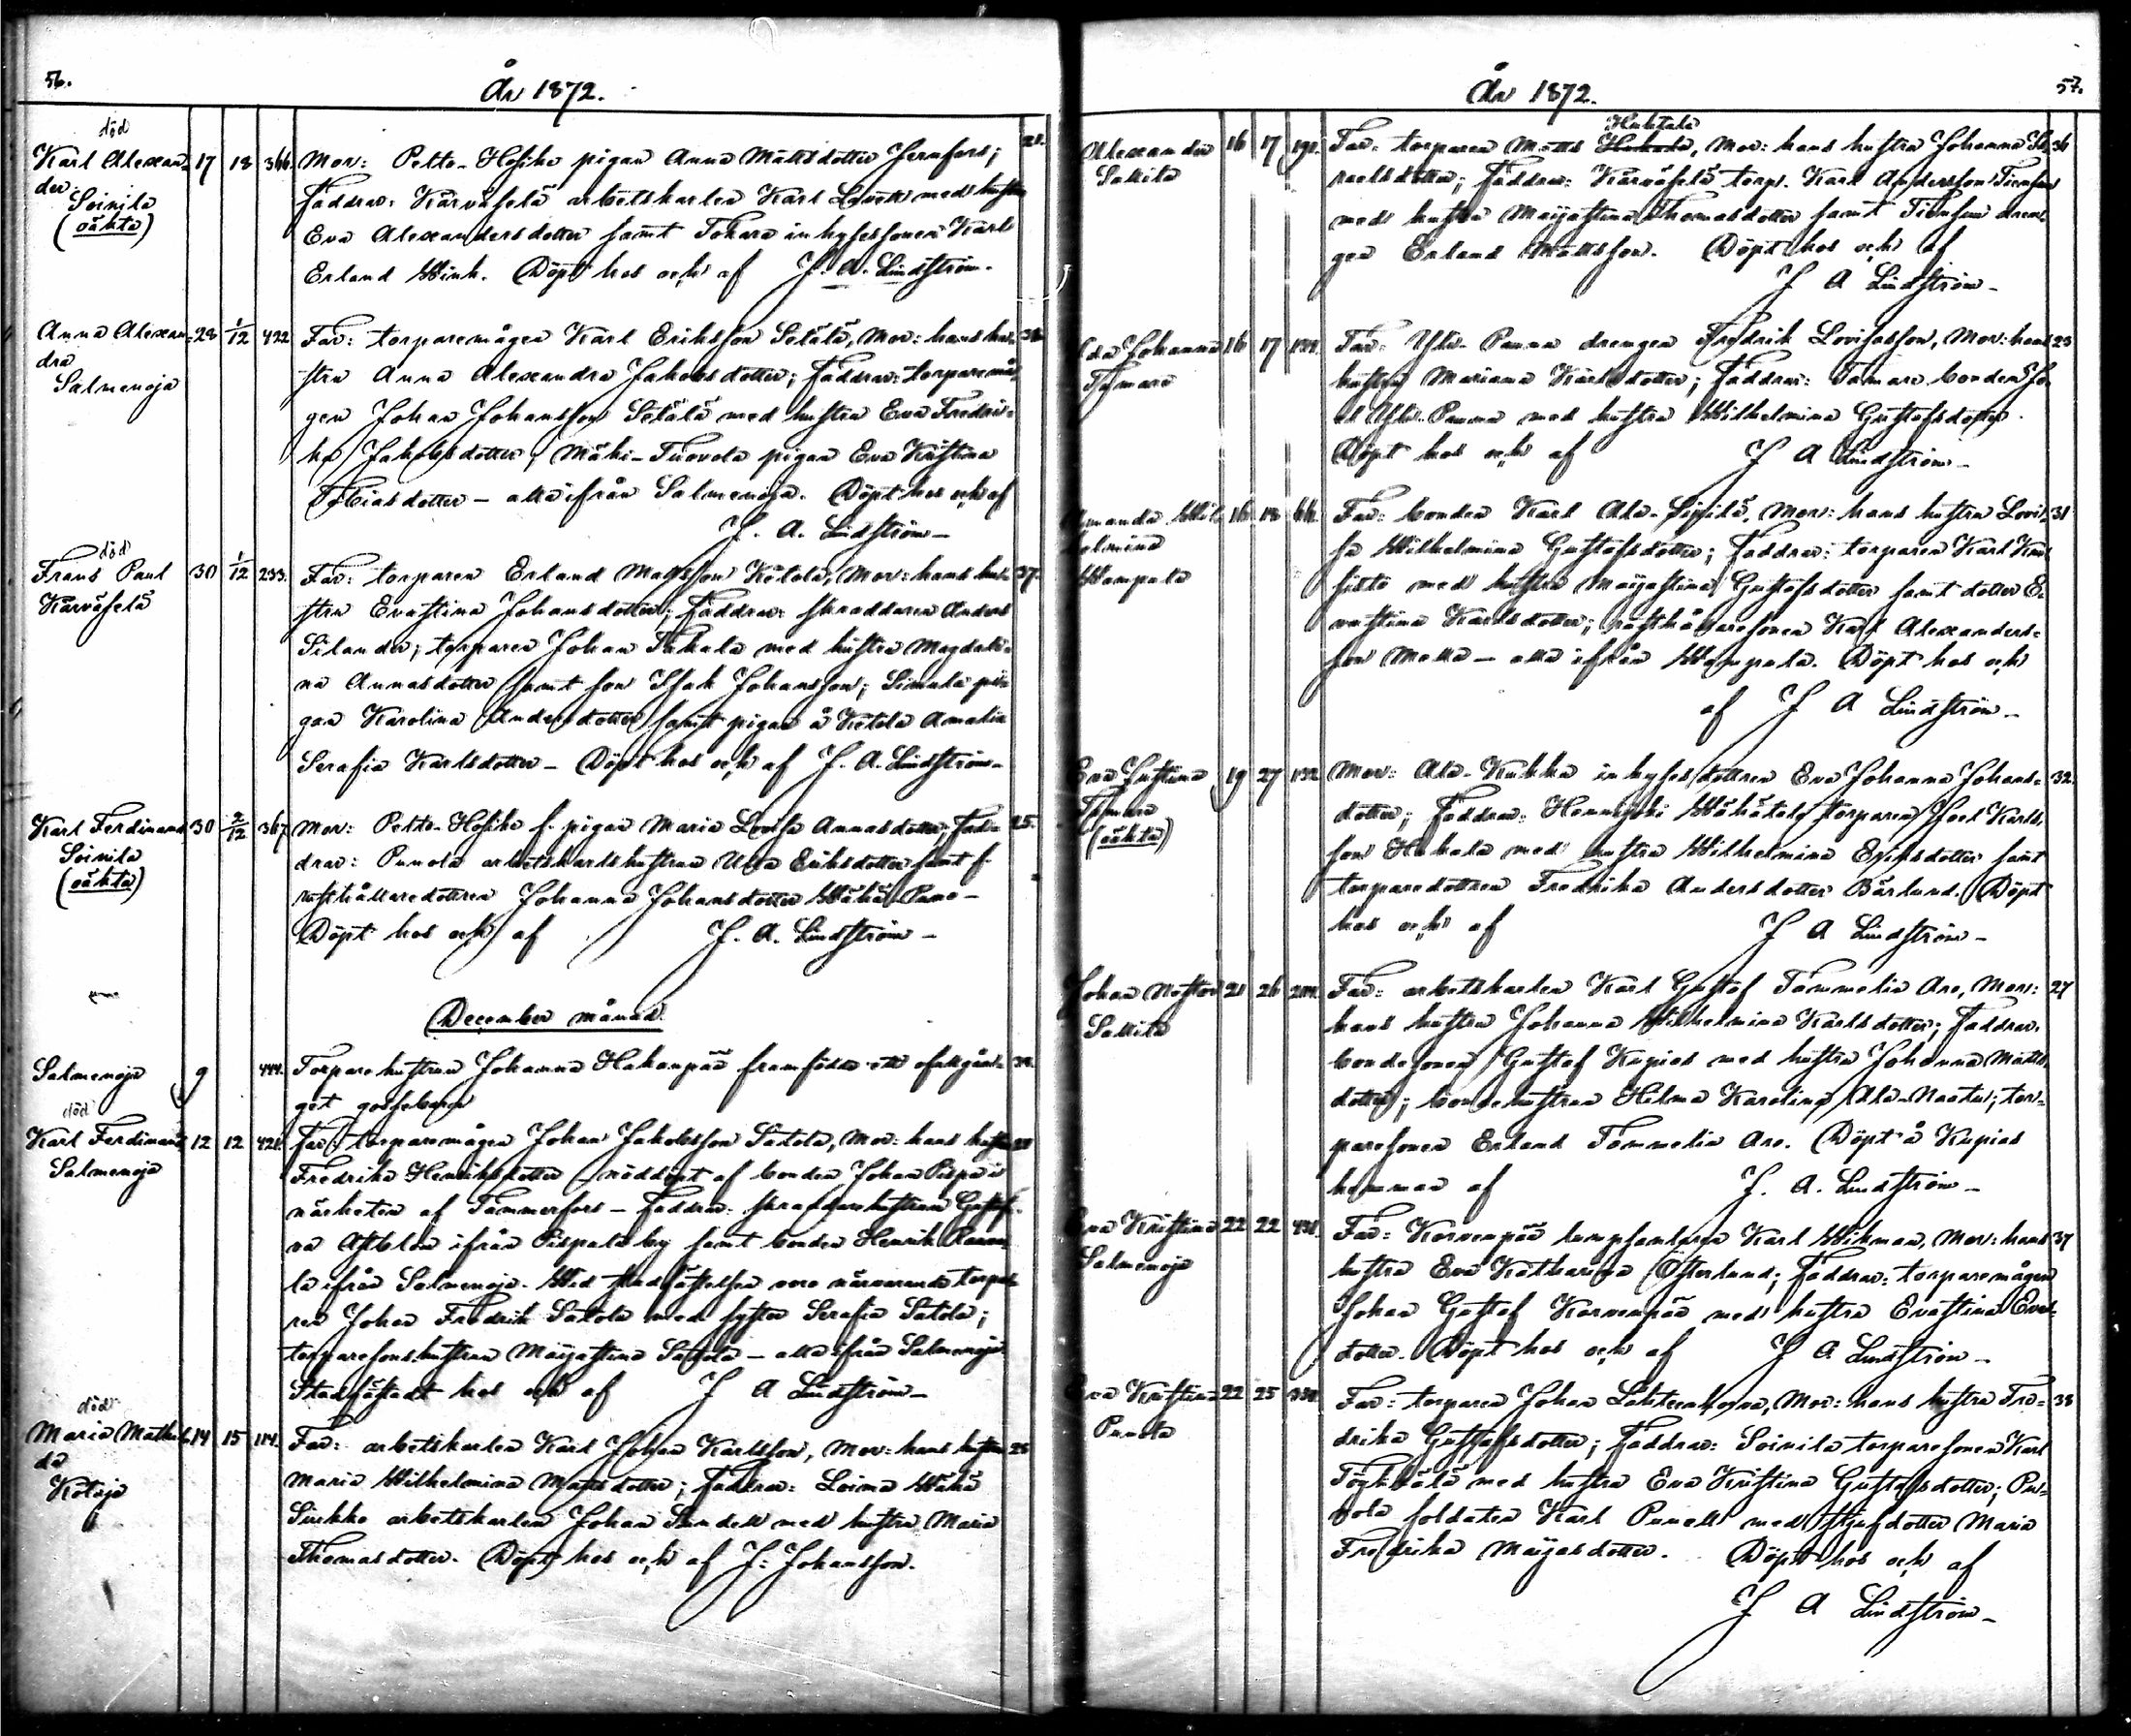 56.
År 1872.
död
Karl Alexan- 17 18 366. Mor: Peltto-Hosiko pigan Anna Mattsdotter Jernfors; 21.
der
Soinila
(oäkta)
Faddrar: Kärväselä arbetskarlen Karl Lövett med hustru
Eva Alexandersdotter samt Tokara inhysessonen Karl
Erland Wink. Döpt hos och af J. A. Lindström.
Anna Alexan- 28 1/12 422 Far: torparemågen Karl Eriksson Setälä, Mor: hans hu-
dra
Salmenoja
stru Anna Alexandra Jakobsdotter; Faddrar: torparemå-
gen Johan Johansson Setälä med hustru Eva Fredri-
ka Jakobsdotter; Mäki-Tuovola pigan Eva Kristina
Tobiasdotter – alla ifrån Salmenoja. Döpt hos och af
J. A. Lindström –
död
Frans Paul 30 1/12 233. Far: torparen Erland Mattsson Ketola, Mor: hans hu- 37.
Kärväselä
stru Evastina Johansdotter; Faddrar: skräddaren Anders
Silander; torparen Johan Takala med hustru Magdale-
na Annasdotter samt son Isak Johansson; Simula pi-
gan Karolina Andersdotter samt pigan å Ketola Amalia
Serafia Karlsdotter – Döpt hos och af J. A. Lindström –
Karl Ferdinand 30 2/12 367. Mor: Peltto-Hosiko f. pigan Maria Lovisa Annasdotter; Fad- 25.
Soinila
(oäkta)
drar: Punola arbetskarlshustrun Ulla Eriksdotter samt f.
rusthållaredottren Johanna Johansdotter Wähä Pano –
Döpt hos och af J. A. Lindström –
December månad.
Salmenoja 9 444. Torparehustrun Johanna Hakanpää framfödde ett ofullgån-
get gossebarn
död
Karl Ferdinand 12 12 421. Far: torparemågen Johan Jakobsson Satola, Mor: hans hustru
Salmenoja
Fredrika Henriksdotter – nöddöpt af bonden Johan Pispa i
närheten af Tammerfors – Faddrar: skräddarehustrun Gustaf-
va Asblom ifrån Pispala by samt bonden Henrik
la ifrån Salmenoja. Wid stadfästelsen voro närvarande torpa-
ren Johan Fredrik Satola med syster Serafia Satola;
torparesonshustrun Majastina Satola – alla ifrån Salmenoja
Stadfästadt hos och af J A Lindström –
död
Maria Mathil- 14 15 114. Far: arbetskarlen Karl Johan Karlsson, Mor: hans hustru 25
da
Kotoja
Maria Wilhelmina Mattsdotter; Faddrar: Loima Wähä
Sirkko arbetskarlen Johan Sundell med hustru Maria
Thomasdotter. Döpt hos och af J: Johansson.
57.
År 1872.
Huhtala
Alexander 16 17 191. Far: torparen Matts, Mor: hans hustru Johanna Is- 36
Sallila
raelsdotter; Faddrar: Kärväselä torp. Karl Andersson Tiensuu
med hustru Majastina Thomasdotter samt Tiensuu dren-
gen Erland Mattsson. Döpt hos och af
J A Lindström –
Ida Johanna 16 17 Far: Yli-Panna drengen Fredrik Lovisasson, Mor: hans 23
Tamare
hustru Mariana Karlsdotter; Faddrar: Tamare bonden Jo-
el Yli-Panna med hustru Wilhelmina Gustafsdotter.
Döpt hos och af J A Lindström –
Amanda Wil- 16 18 66. Far: bonden Karl Ala-Sipilä, Mor: hans hustru Lovi- 31
helmina
Wampula
sa Wilhelmina Gustafsdotter; Faddrar: torparen Karl
med hustru Majastina Gustafsdotter samt dotter E-
vastina Karlsdotter; rusthållaresonen Karl Alexanders-
son Matta – alla ifrån Wampula. Döpt hos och
af J A Lindström –
Eva Justina 19 27 132 Mor: Ala-Kukka inhysesdottren Eva Johanna Johans- 32.
Tamare
(oäkta)
dotter; Faddrar: Hennijoki Wähätalo torparen Joel Karls-
son Hakala med hustru Wilhelmina Eriksdotter samt
torparedottren Fredrika Andersdotter Bärlund. Döpt
hos och af J A Lindström –
Johan Nestor 21 26 Far: arbetskarlen Karl Gustaf Tammelin Aro, Mor: 27
Sallila
hans hustru Johanna Wilhelmina Karlsdotter; Faddrar:
bondesonen Gustaf Kupias med hustru Johanna Matts-
dotter; bondehustrun Helma Karolina Ala-Naatu; tor-
paresonen Erland Tammelin Aro. Döpt å Kupias
hemman af J. A. Lindström –
Eva Kristina 22 22 Far: Korvenpää lumpsamlaren Karl Wikman, Mor: hans 37
Salmenoja
hustru Eva Katharina Österlund; Faddrar: torparemågen
Johan Gustaf Korvenpää med hustru Evastina Evas-
dotter. Döpt hos och af J A Lindström –
Eva Kristina 22 25 Far: torparen Johan Lähteenkorva, Mor: hans hustru Fre- 38
Punola
drika Gustafsdotter; Faddrar: Soinila torparesonen Karl
med hustru Eva Kristina Gustafsdotter; Pu-
nola soldaten Karl Punell med styfdotter Maria
Fredrika Majasdotter. Döpt hos och af
J A Lindström –